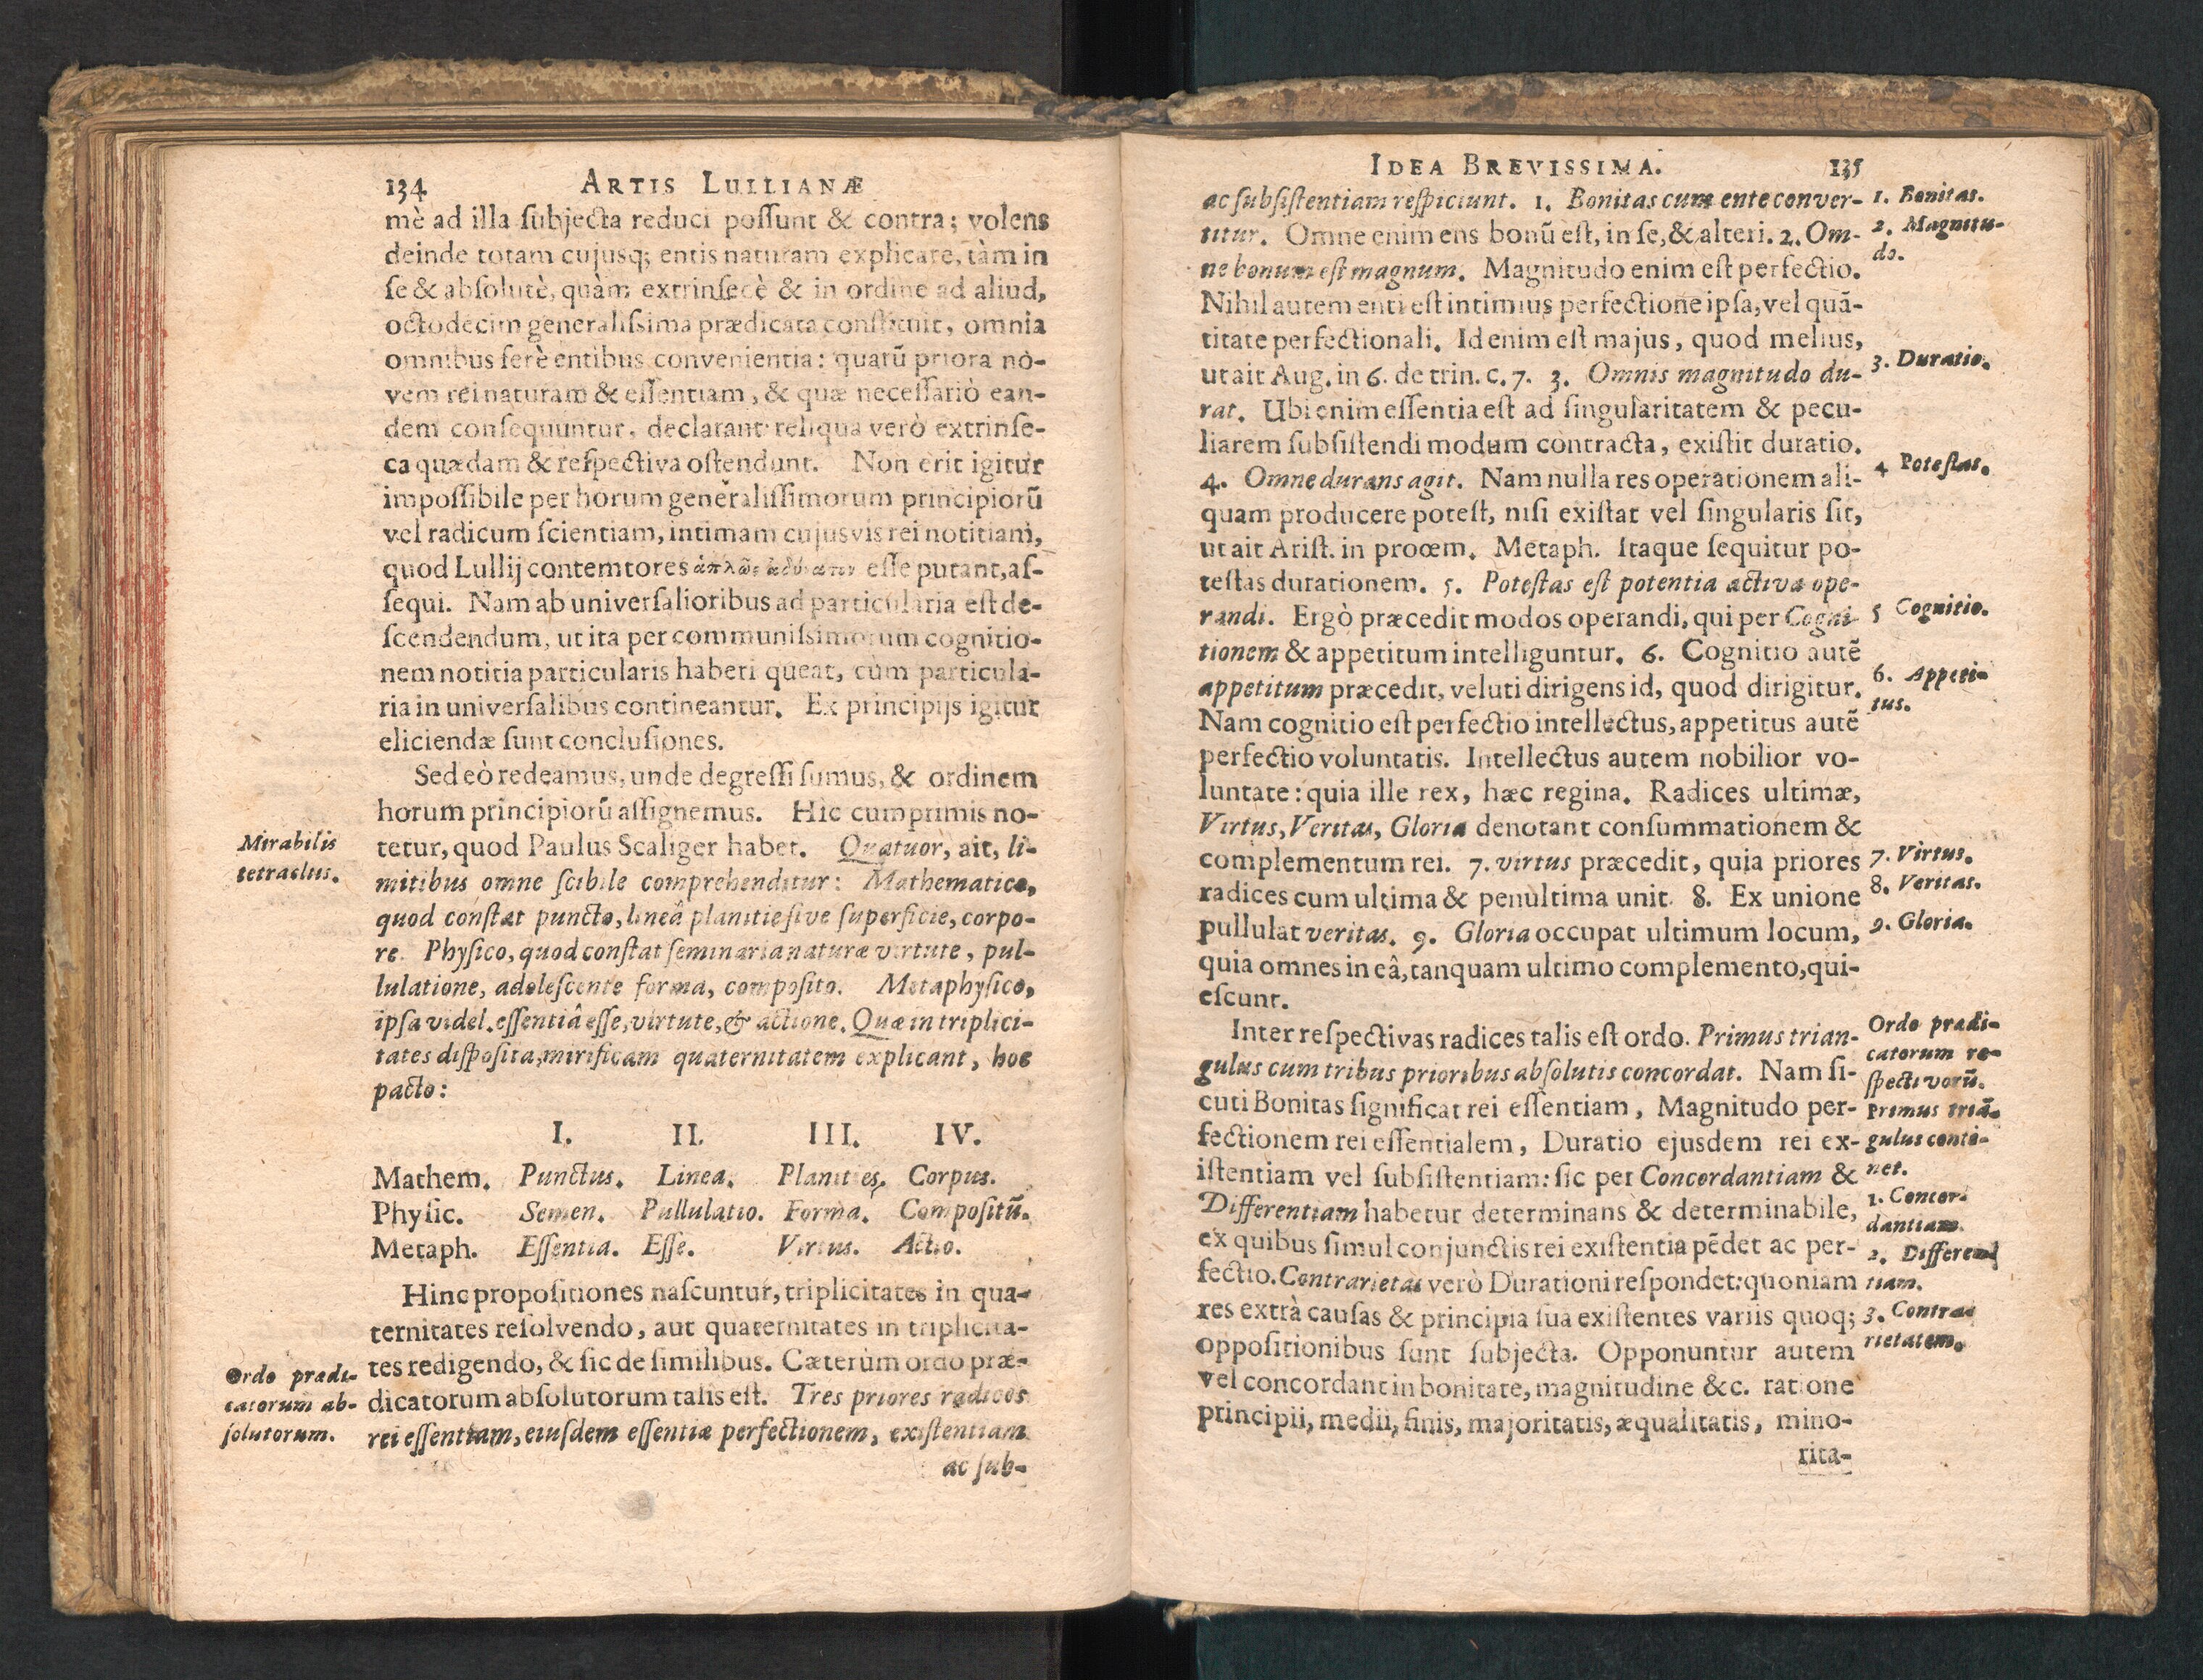 134 ARTIS LULLIANÆ
mè ad illa ſubjecta reduci poſſunt & contra; volens
deinde totam cujusq; entis naturam explicare, tàm in
ſe & abſolutè, quàm extrinſecè & in ordine ad aliud,
octodecim generaliſsima prædicata conſtituit, omnia
omnibus ferè entibus convenientia: quarũ priora no-
vem rei naturam & eſſentiam, & quæ neceſſariò ean-
dem conſequuntur, declarant: reliqua verò extrinſe-
ca quædam & reſpectiva oſtendunt. Non erit igitur
impoſſibile per horum generaliſſimorum principiorũ
vel radicum ſcientiam, intimam cujusvis rei notitiam,
quod Lullij contemtores ἁπλῶς eſſe putant, aſ-
ſequi. Nam ab univerſalioribus ad particularia eſt de-
ſcendendum, ut ita per communiſsimorum cognitio-
nem notitia particularis haberi queat, cùm particula-
ria in univerſalibus contineantur. Ex principijs igitur
eliciendæ ſunt concluſiones.
Sed eò redeamus, unde degreſſi ſumus, & ordinem
horum principiorũ aſſignemus. Hic cumprimis no-
tetur, quod Paulus Scaliger habet. Quatuor, ait, li-
mitibus omne ſcibile comprehenditur: Mathematico,
quod conſtat puncto, lineâ planitie ſive ſuperficie, corpo-
re. Phyſico, quod conſtat ſeminaria naturæ virtute, pul-
lulatione, adoleſcente forma, compoſito. Metaphyſico,
ipſa videl. eſſentiâ eſſe, virtute, & actione. Quæ in triplici-
tates diſpoſita, mirificam quaternitatem explicant, hoc
pacto:
Mirabilis
tetractus.
I. II. III. IV.
Mathem. Punctus. Linea. Planities. Corpus.
Phyſic. Semen. Pullulatio. Forma. Compoſitũ.
Metaph. Eſſentia. Eſſe. Virtus. Actio.
Hinc propoſitiones naſcuntur, triplicitates in qua-
ternitates reſolvendo, aut quaternitates in triplicita-
tes redigendo, & ſic de ſimilibus. Cæterùm ordo præ-
dicatorum abſolutorum talis eſt. Tres priores radices
rei eſſentiam, eiuſdem eſſentiæ perfectionem, exiſtentiam
Ordo prædi-
catorum ab-
ſolutorum.
ac ſub-
IDEA BREVISSIMA. 135
ac ſubſiſtentiam reſpiciunt. 1. Bonitas cum ente conver-
titur. Omne enim ens bonũ eſt, in ſe, & alteri. 2. Om-
ne bonum eſt magnum. Magnitudo enim eſt perfectio.
Nihil autem enti eſt intimius perfectione ipſa, vel quã-
titate perfectionali. Id enim eſt majus, quod melius,
ut ait Aug. in 6. de trin. c. 7. 3. Omnis magnitudo du-
rat. Ubi enim eſſentia eſt ad ſingularitatem & pecu-
liarem ſubſiſtendi modum contracta, exiſtit duratio.
4. Omne durans agit. Nam nulla res operationem ali-
quam producere poteſt, niſi exiſtat vel ſingularis ſit,
ut ait Ariſt. in proœm. Metaph. Itaque ſequitur po-
teſtas durationem. 5. Poteſtas eſt potentia activa ope-
randi. Ergò præcedit modos operandi, qui per Cogni-
tionem & appetitum intelliguntur. 6. Cognitio autẽ
appetitum præcedit, veluti dirigens id, quod dirigitur.
Nam cognitio eſt perfectio intellectus, appetitus autẽ
perfectio voluntatis. Intellectus autem nobilior vo-
luntate: quia ille rex, hæc regina. Radices ultimæ,
Virtus, Veritas, Gloria denotant conſummationem &
complementum rei. 7. virtus præcedit, quia priores
radices cum ultima & penultima unit. 8. Ex unione
pullulat veritas. 9. Gloria occupat ultimum locum,
quia omnes in eâ, tanquam ultimo complemento, qui-
eſcunt.
1. Bonitas.
2. Magnitu-
do.
3. Duratio.
4 Poteſtas.
5 Cognitio.
6. Appeti-
tus.
7. Virtus.
8. Veritas.
9. Gloria.
Inter reſpectivas radices talis eſt ordo. Primus trian-
gulus cum tribus prioribus abſolutis concordat. Nam ſi-
cuti Bonitas ſignificat rei eſſentiam, Magnitudo per-
fectionem rei eſſentialem, Duratio ejusdem rei ex-
iſtentiam vel ſubſiſtentiam: ſic per Concordantiam &
Differentiam habetur determinans & determinabile,
ex quibus ſimul conjunctis rei exiſtentia pẽdet ac per-
fectio. Contrarietas verò Durationi reſpondet: quoniam
res extrà cauſas & principia ſua exiſtentes variis quoq;
oppoſitionibus ſunt ſubjecta. Opponuntur autem
vel concordant in bonitate, magnitudine &c. ratione
principii, medii, finis, majoritatis, æqualitatis, mino-
Ordo prædi-
catorum re-
ſpectivorũ.
Primus triã-
gulus conti-
net.
1. Concor-
dantiam.
2. Differen-
tiam.
3. Contra-
rietatem.
rita-